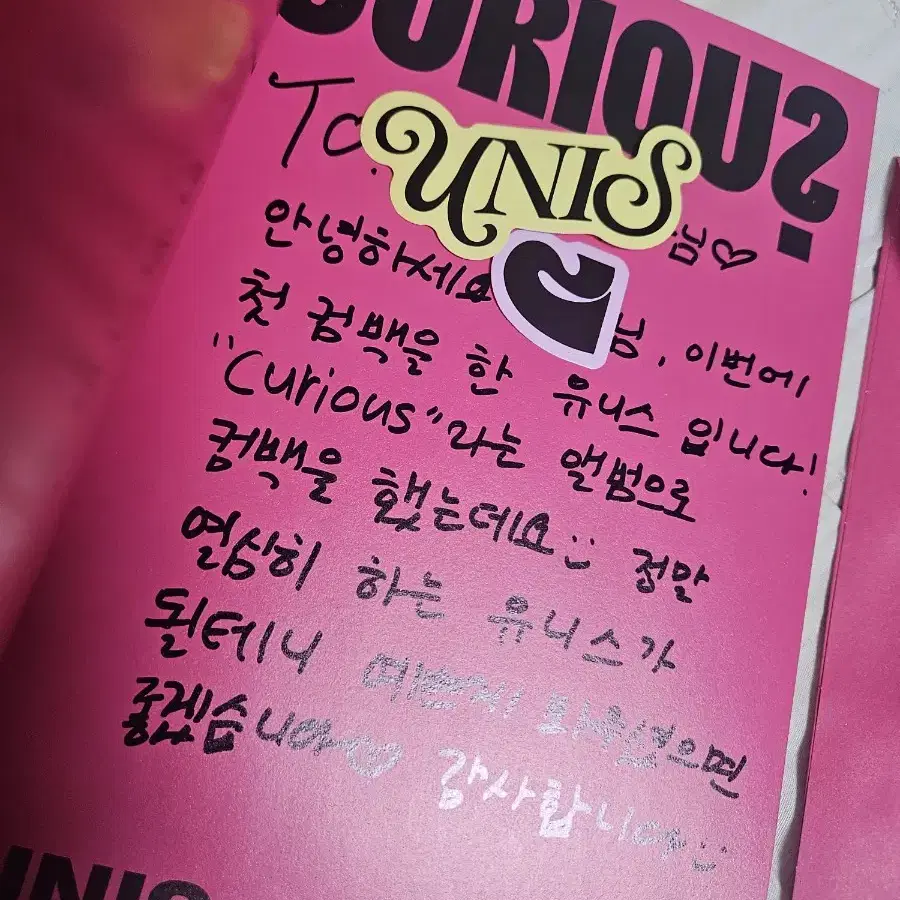 CURIOU?
To.
UNIS
님♡
안녕하세요 님, 이번에
첫 컴백을 한 유니스 입니다!
"Curious"라는 앨범으로
컴백을 했는데요:) 정말
열심히 하는 유니스가
될테니 예쁘게 봐주셨으면
좋겠습니다♡ 감사합니다:)
UNIS